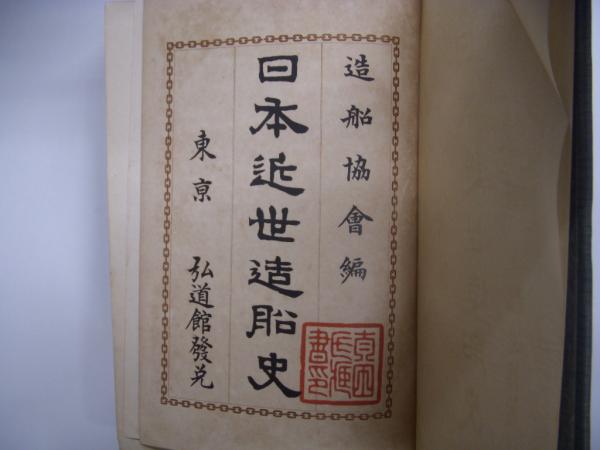 造船協會編
日本近世造船史
東京 弘道館發兌